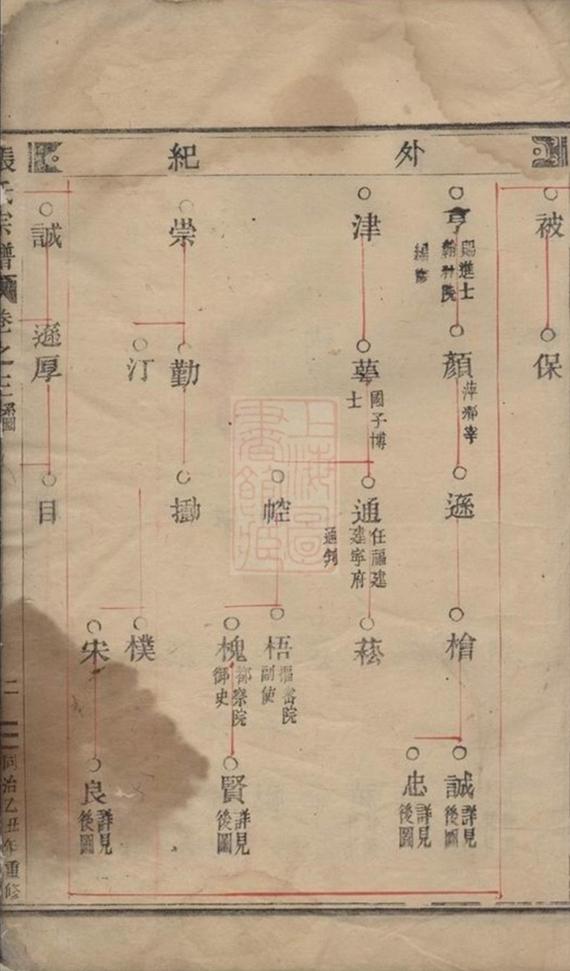 外紀
被
保
亨
賜進士
翰林院
編修
顏
萍鄉宰
遜
檜
誠
詳見
後圖
忠
詳見
後圖
津
華
國子博
士
通
任福建
建寧府
通判
崧
㤝
梧
樞密院
副使
槐
都察院
御史
賢
詳見
後圖
崇
勤
汀
勱
樸
宋
良
詳見
後圖
誠
遜厚
目
張氏宗譜
卷之三系圖
二
同治乙丑年重修
上海圖書館藏